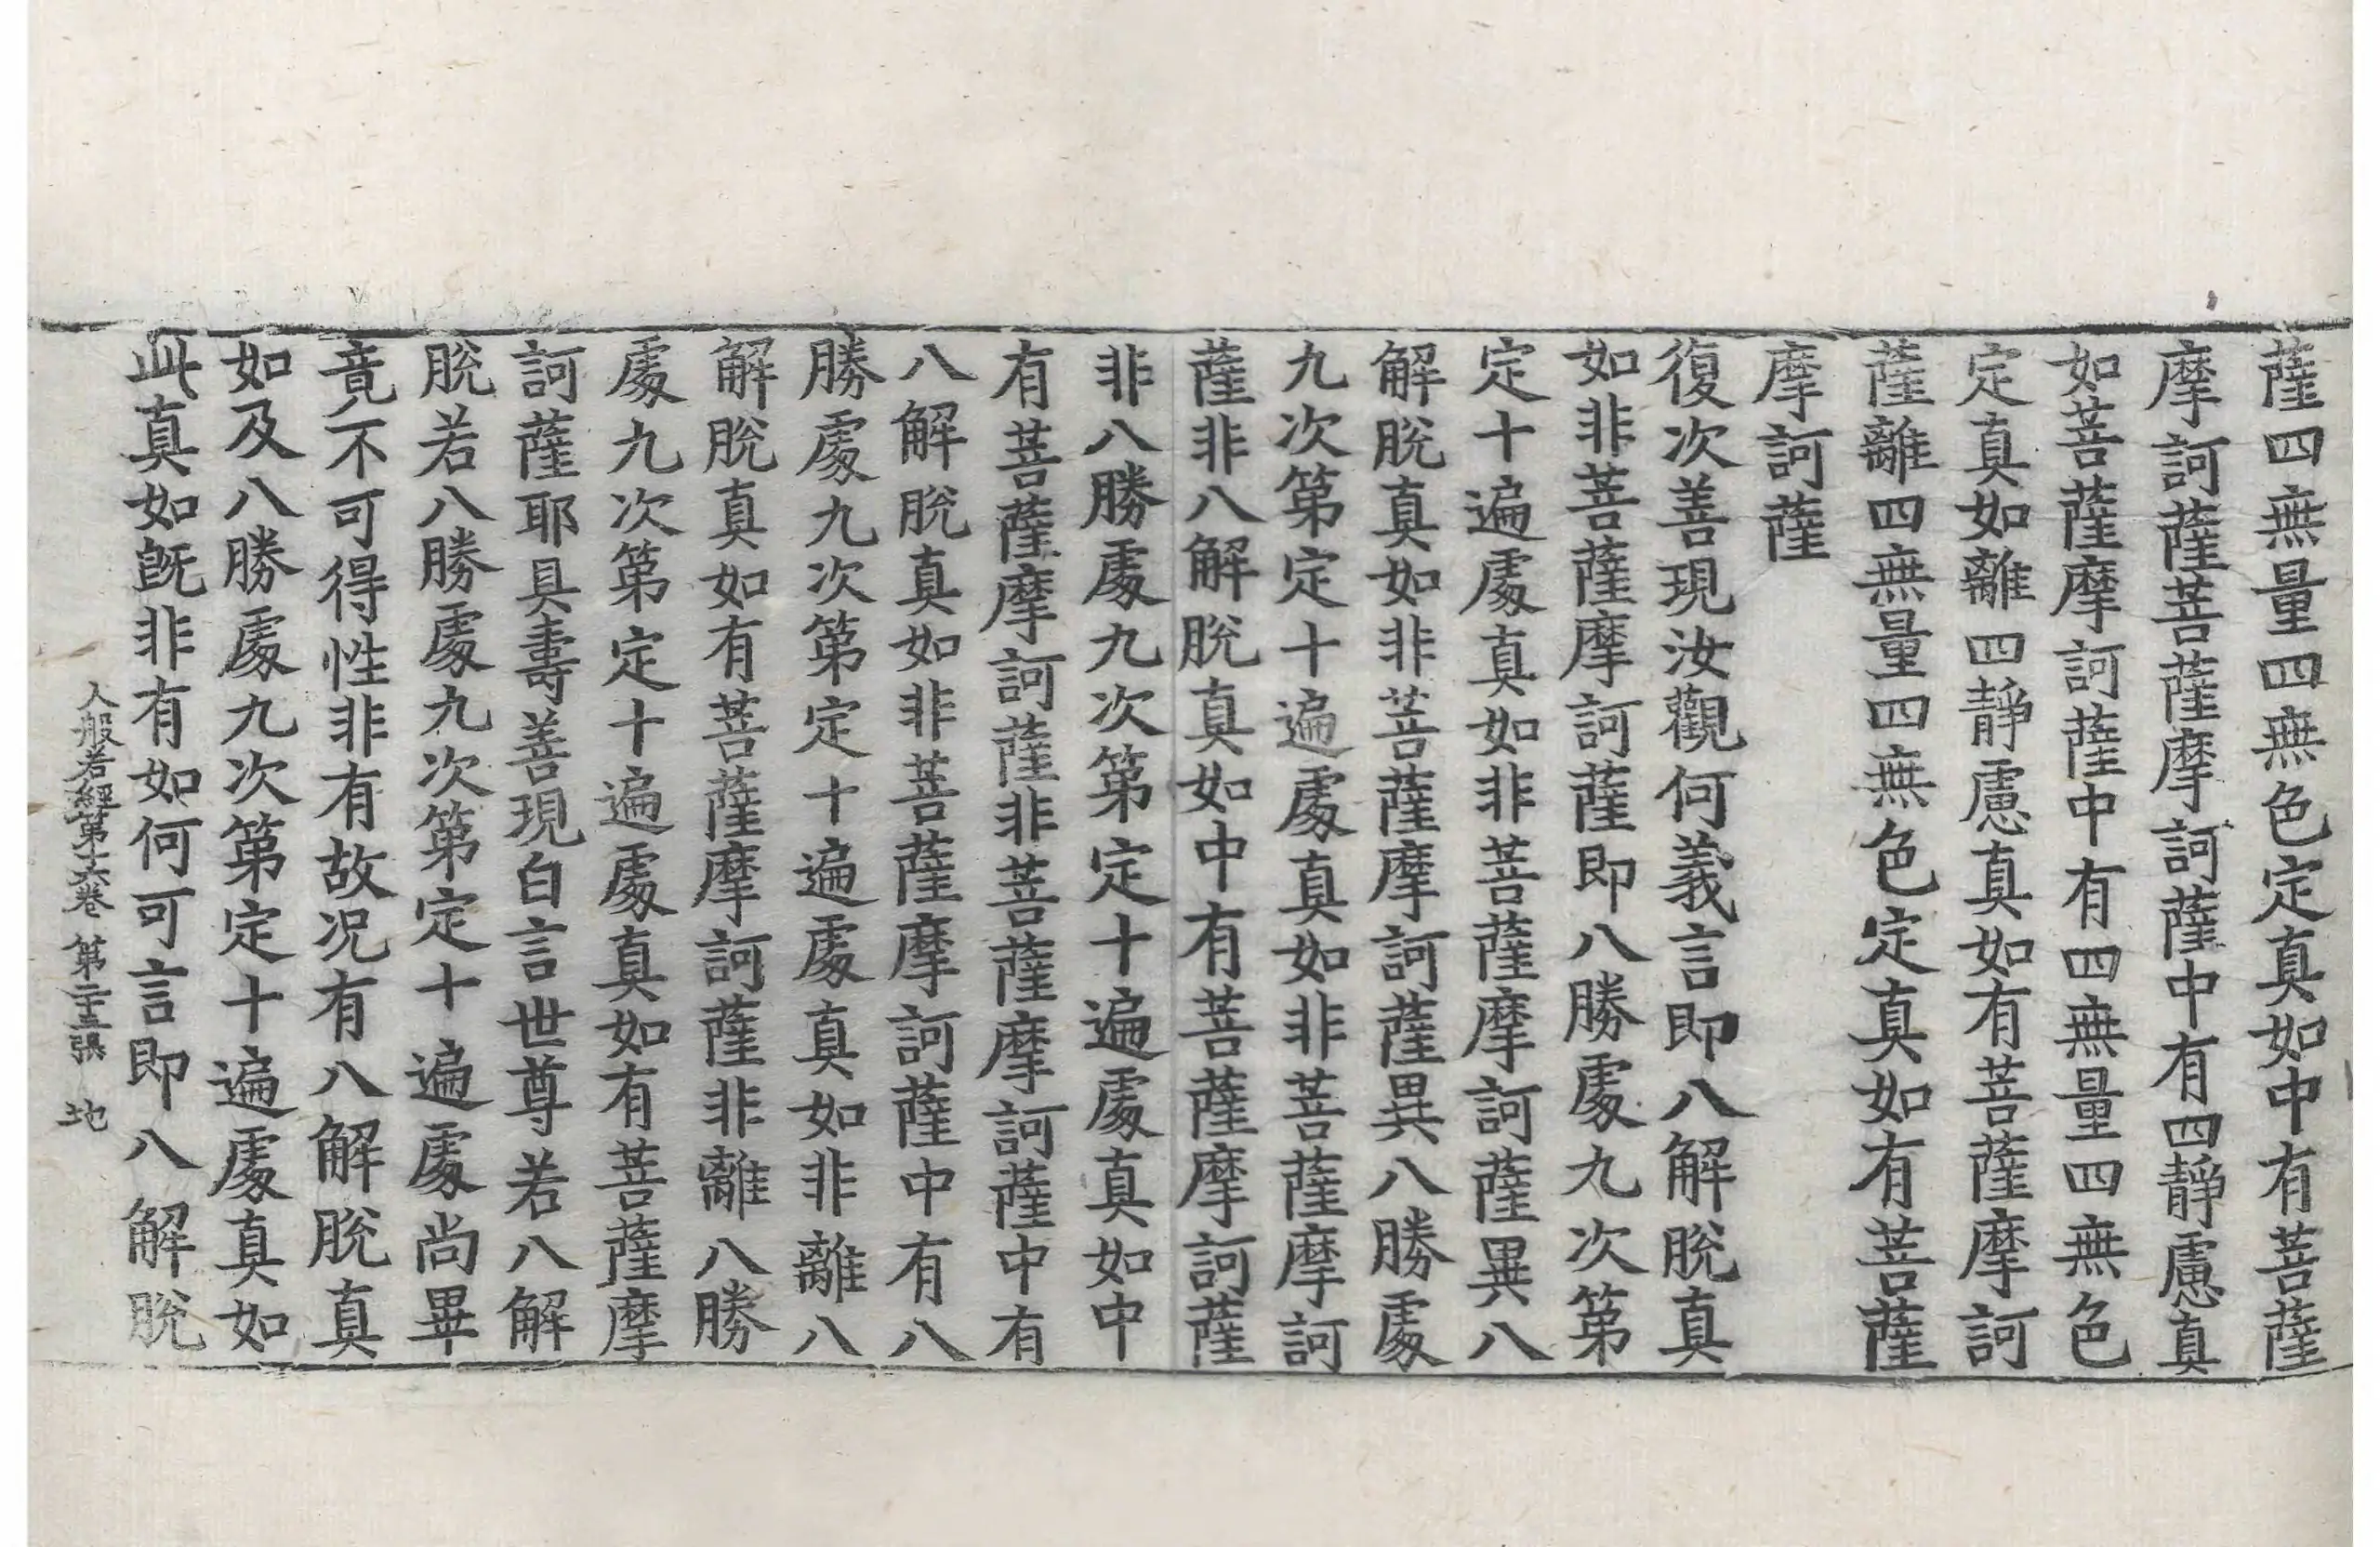 薩四無量四無色定真如中有菩薩
摩訶薩菩薩摩訶薩中有四靜慮真
如菩薩摩訶薩中有四無量四無色
定真如離四靜慮真如有菩薩摩訶
薩離四無量四無色定真如有菩薩
摩訶薩
復次善現汝觀何義言即八解脫真
如非菩薩摩訶薩即八勝處九次第
定十遍處真如非菩薩摩訶薩異八
解脫真如非菩薩摩訶薩異八勝處
九次第定十遍處真如非菩薩摩訶
薩非八解脫真如中有菩薩摩訶薩
非八勝處九次第定十遍處真如中
有菩薩摩訶薩非菩薩摩訶薩中有
八解脫真如非菩薩摩訶薩中有八
勝處九次第定十遍處真如非離八
解脫真如有菩薩摩訶薩非離八勝
處九次第定十遍處真如有菩薩摩
訶薩耶具壽善現白言世尊若八解
脫若八勝處九次第定十遍處尚畢
竟不可得性非有故況有八解脫真
如及八勝處九次第定十遍處真如
此真如既非有如何可言即八解脫
般若經第六卷 第二十三張 地